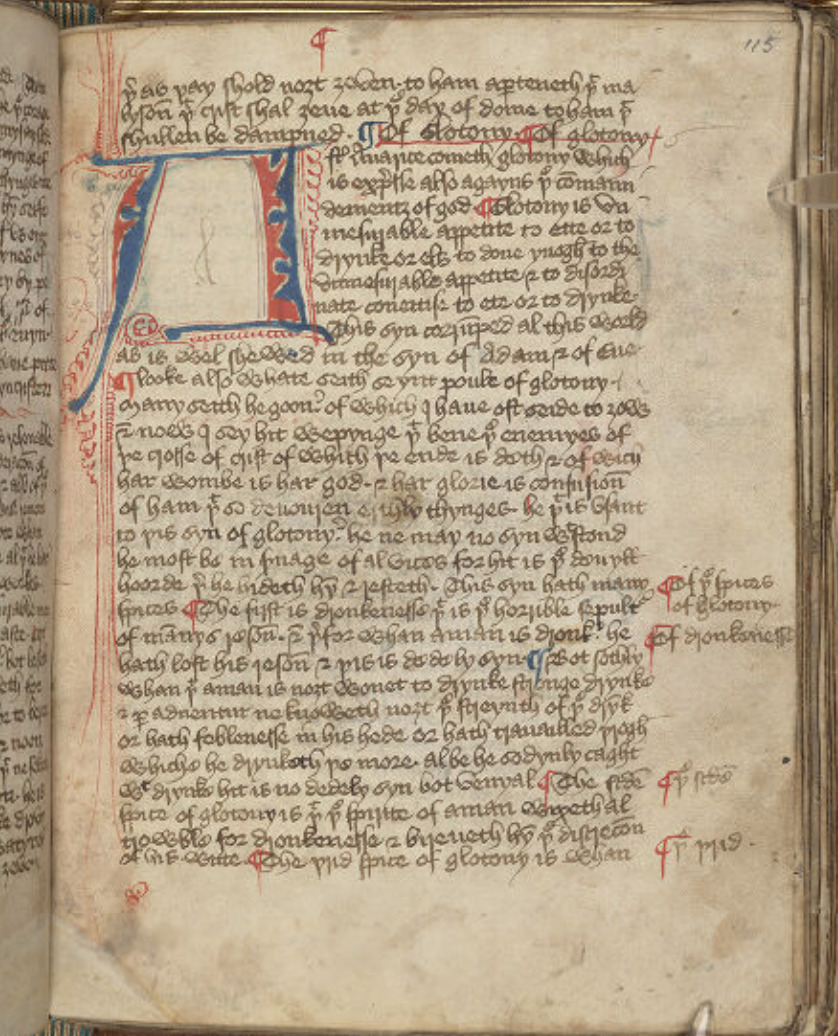 115
þt as pay shold nozt zeven · to ham apteneth þt ma
lyson þt crist shal zeue at þe day of dome to ham þt
shullen be dampned · ¶ Of Glotony · ¶ Of glotony
Aftr Auarice cometh glotony which
is expresse also agayns þe comann
dementz of god ¶ Glotony is vn
mesurable appetite to ette or to
drynke or els to done ynogh to the
vnmesurable appetite & to disordi
nate coueitise to ete or to drynke ·
This syn corruped al this world
as is wel shewed in the syn of Adam & of Eue ·
¶ looke also whate seith seynt poule of glotony ·
Many seith he goon · of which I haue oft seide to zow
& now I sey hit wepynge þt bene þe enemyes of
þe crosse of crist of which þe ende is deth & of wich
har wombe is har god · & har glorie is confusion
of ham þt so deuouren erthly thynges · he þt is vsant
to þis syn of glotony · he ne may no syn wtstond
he most be in seruage of al vices for hit is þe deuyll
hoorde þt he hideth hym & resteth · This syn hath many
spices ¶ The first is dronkenesse þt is þe horrible sepultr
of mannys reson · & þtfor whan aman is dronk · he
hath lost his reson & þis is dedely syn · ¶ Bot sothly
whan þt aman is nozt wonet to drynke stronge drynke
& per aduentur ne knoweth nozt þe streynth of þe drynk
or hath feblenesse in his hede or hath trauailled
whiche he drynketh þe more · albe he sodynly caght
wt drynke hit is no dedely syn bot venyal ¶ The secde
spice of glotony is þt þe spirite of aman wexeth al
trowble for dronkenesse & bireueth hym þe discrecon
of his witte · ¶ The þrid spice of glotony is whan
¶ Of þe spices
of glotony ·
¶ Of dronkenesse
¶ þe secde
¶ þe þrid ·